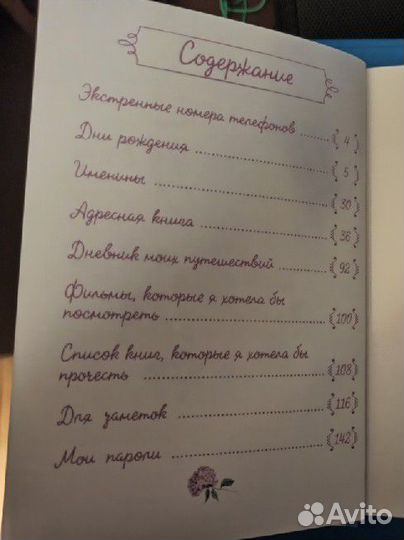 Содержание
Экстренные номера телефонов ........ 4
Дни рождения ........ 5
Именины ........ 30
Адресная книга ........ 36
Дневник моих путешествий ........ 92
Фильмы, которые я хотела бы
посмотреть ........ 100
Список книг, которые я хотела бы
прочесть ........ 108
Для заметок ........ 116
Мои пароли ........ 142
Avito